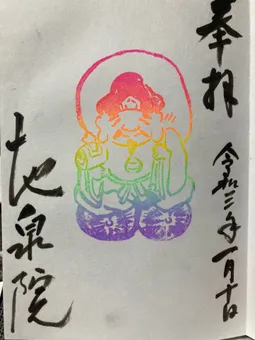 奉拝
令和三年一月十日
地泉院